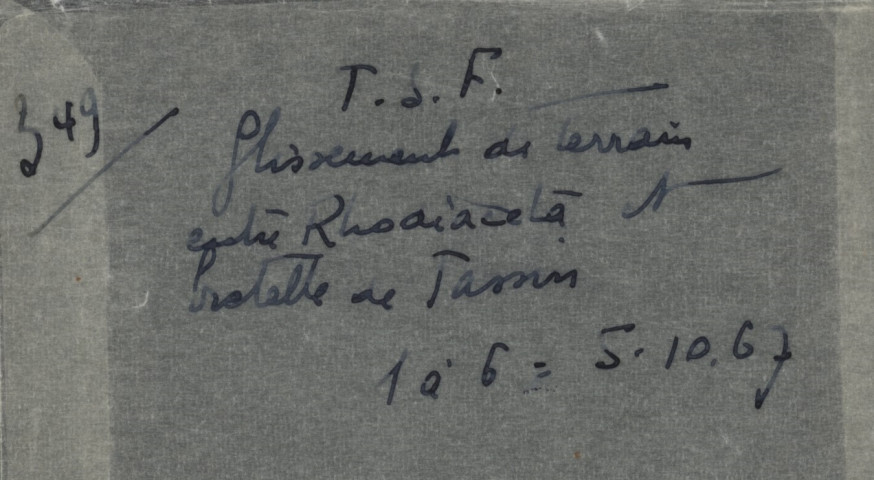 349
T.S.F.
Glissement de terrain
entre Rhodiaceta
bretelle de Tassin
1 à 6 = 5.10.67